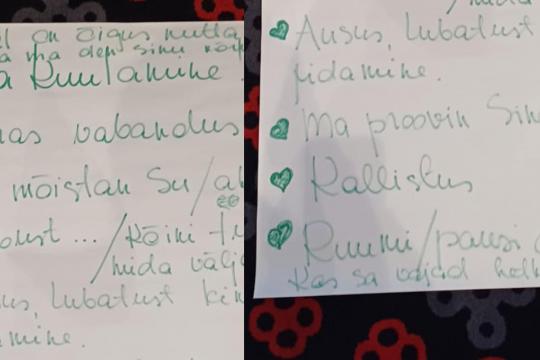 on õigus nutta
ma den sinu
a Kuulamine
vabandus
mõistan Su/
... /Kõiki
mida välj
Lubatust
Ausus, Lubatust
pidamine.
Ma proovin Sin
Kallistus
Ruumi/pausi
Kas sa vajad